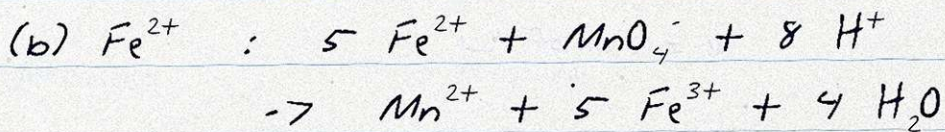 (b) Fe²⁺ : 5 Fe²⁺ + MnO₄⁻ + 8 H⁺
-> Mn²⁺ + 5 Fe³⁺ + 4 H₂O